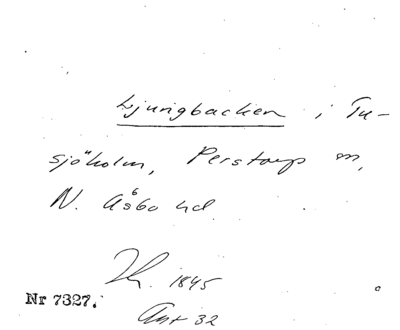 Ljungbacken i Tu-
sjöholm, Perstorp sn,
N. Åsbo hd.
1845
Nr 7327.
Ant 32